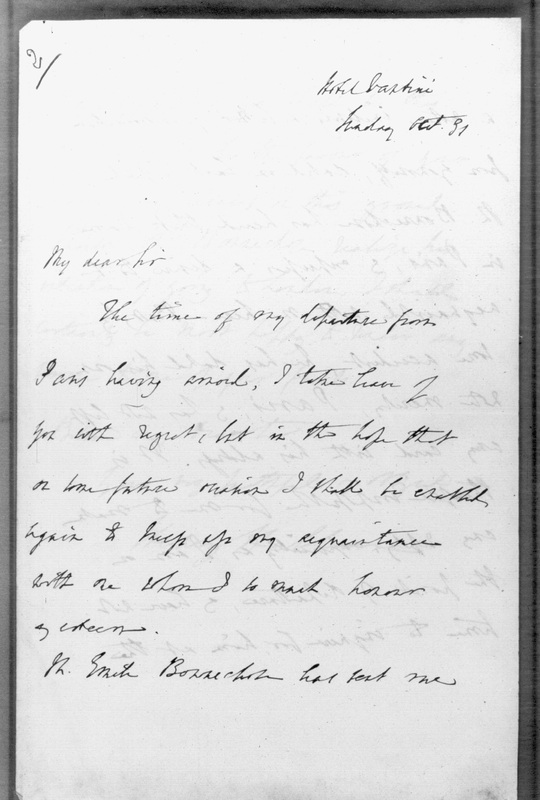 2/
Hotel
Sunday Oct. 31
My dear Sir
The time of my departure from
Paris having arrived, I take leave of
you with regret, but in the hope that
on some future occasion I shall be enabled
again to keep up my acquaintance
with one whom I so much honour
& esteem.
M. Emile Bonnechose has sent me